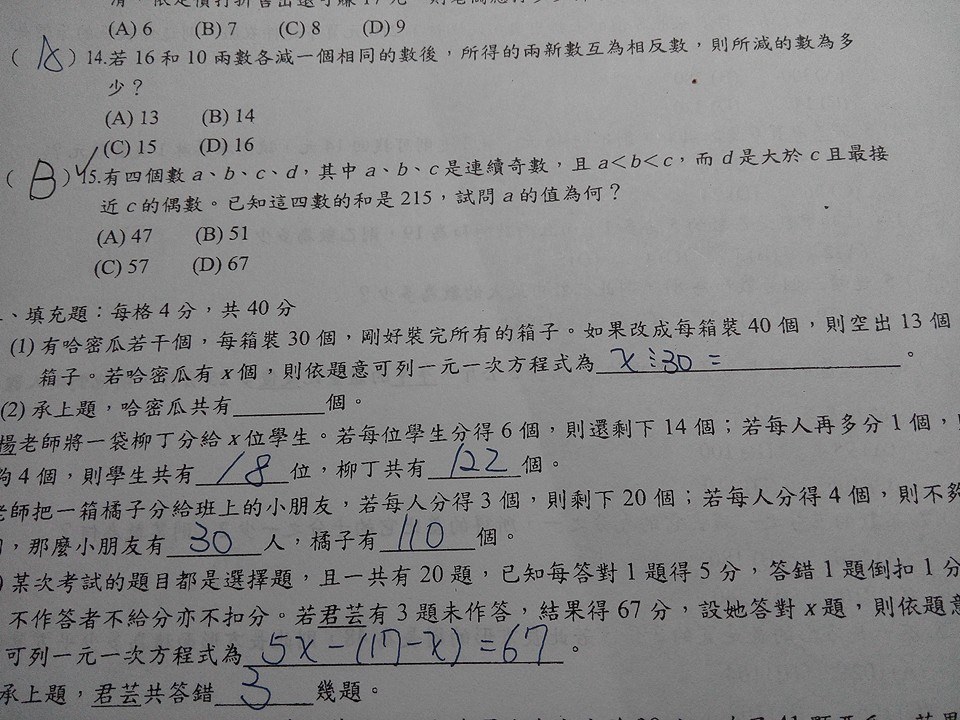 (A) 6 (B) 7 (C) 8 (D) 9
( A ) 14.若 16 和 10 兩數各減一個相同的數後，所得的兩新數互為相反數，則所減的數為多
少？
(A) 13 (B) 14
(C) 15 (D) 16
( B ) 15.有四個數 a、b、c、d，其中 a、b、c 是連續奇數，且 a<b<c，而 d 是大於 c 且最接
近 c 的偶數。已知這四數的和是 215，試問 a 的值為何？
(A) 47 (B) 51
(C) 57 (D) 67
、填充題：每格 4 分，共 40 分
(1) 有哈密瓜若干個，每箱裝 30 個，剛好裝完所有的箱子。如果改成每箱裝 40 個，則空出 13 個
箱子。若哈密瓜有 x 個，則依題意可列一元一次方程式為 x÷30 = 。
(2) 承上題，哈密瓜共有________個。
楊老師將一袋柳丁分給 x 位學生。若每位學生分得 6 個，則還剩下 14 個；若每人再多分 1 個，
夠 4 個，則學生共有 18 位，柳丁共有 122 個。
老師把一箱橘子分給班上的小朋友，若每人分得 3 個，則剩下 20 個；若每人分得 4 個，則不夠
，那麼小朋友有 30 人，橘子有 110 個。
) 某次考試的題目都是選擇題，且一共有 20 題，已知每答對 1 題得 5 分，答錯 1 題倒扣 1 分
不作答者不給分亦不扣分。若君芸有 3 題未作答，結果得 67 分，設她答對 x 題，則依題意
可列一元一次方程式為 5x-(17-x)=67 。
承上題，君芸共答錯 3 幾題。